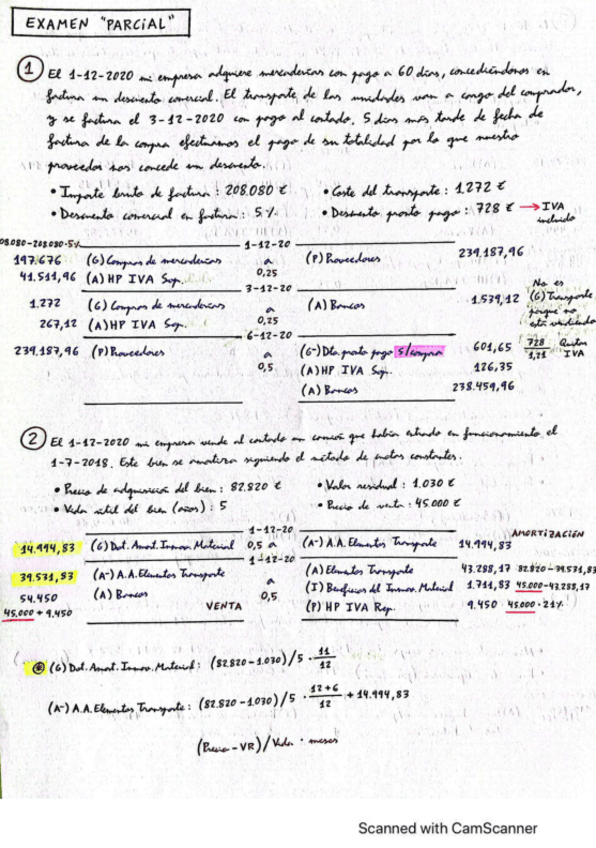 EXAMEN "PARCIAL"
1 El 1-12-2020 mi empresa adquiere mercaderías con pago a 60 días, concediéndonos en
factura un descuento comercial. El transporte de las unidades van a cargo del comprador,
y se factura el 3-12-2020 con pago al contado. 5 días más tarde de fecha de
factura de la compra efectuamos el pago de su totalidad por lo que nuestro
proveedor nos concede un descuento.
• Importe bruto de factura: 208.080 € • Coste del transporte: 1.272 €
• Descuento comercial en factura: 5% • Descuento pronto pago: 728 € → IVA
incluido
08.080-208.080·5% 1-12-20
197.676 (G) Compras de mercaderías a (P) Proveedores 239.187,96
41.511,96 (A) HP IVA Sop. 0,25
3-12-20
1.272 (G) Compras de mercaderías a (A) Bancos 1.539,12
267,12 (A) HP IVA Sop. 0,25
No es
(G) Transporte
porque no
está vendiendo
6-12-20
239.187,96 (P) Proveedores a (G-) Dto. pronto pago s/compra 601,65 728/1,21 Quitar IVA
0,5 (A) HP IVA Sop. 126,35
(A) Bancos 238.459,96
2 El 1-12-2020 mi empresa vende al contado un camión que había entrado en funcionamiento el
1-7-2018. Este bien se amortiza siguiendo el método de cuotas constantes.
• Precio de adquisición del bien: 82.820 € • Valor residual: 1.030 €
• Vida útil del bien (años): 5 • Precio de venta: 45.000 €
1-12-20 AMORTIZACIÓN
14.994,83 (G) Dot. Amort. Inmov. Material 0,5 a (A-) A.A. Elementos Transporte 14.994,83
1-12-20
39.531,83 (A-) A.A. Elementos Transporte a (A) Elementos Transporte 43.288,17 82.820-39.531,83
54.450 (A) Bancos 0,5 (I) Beneficios del Inmov. Material 1.711,83 45.000-43.288,17
45.000 + 9.450 VENTA (P) HP IVA Rep. 9.450 45.000·21%
* (G) Dot. Amort. Inmov. Material: (82.820-1.030)/5 · 11/12
(A-) A.A. Elementos Transporte: (82.820-1.030)/5 · 12+6/12 + 14.994,83
(Precio-VR)/Vida · meses
Scanned with CamScanner